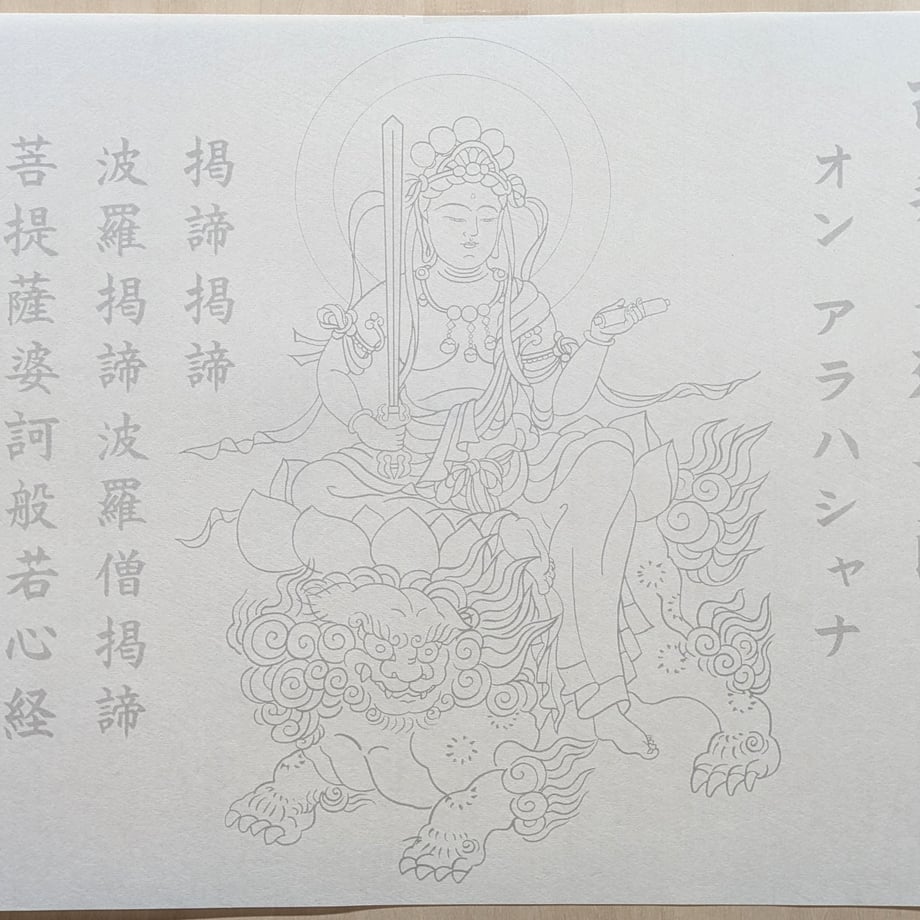 オン アラハシャナ
掲諦掲諦
波羅掲諦波羅僧掲諦
菩提薩婆訶般若心経